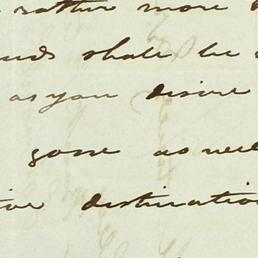 rather more
shall be
as you desire
gone as well
destination